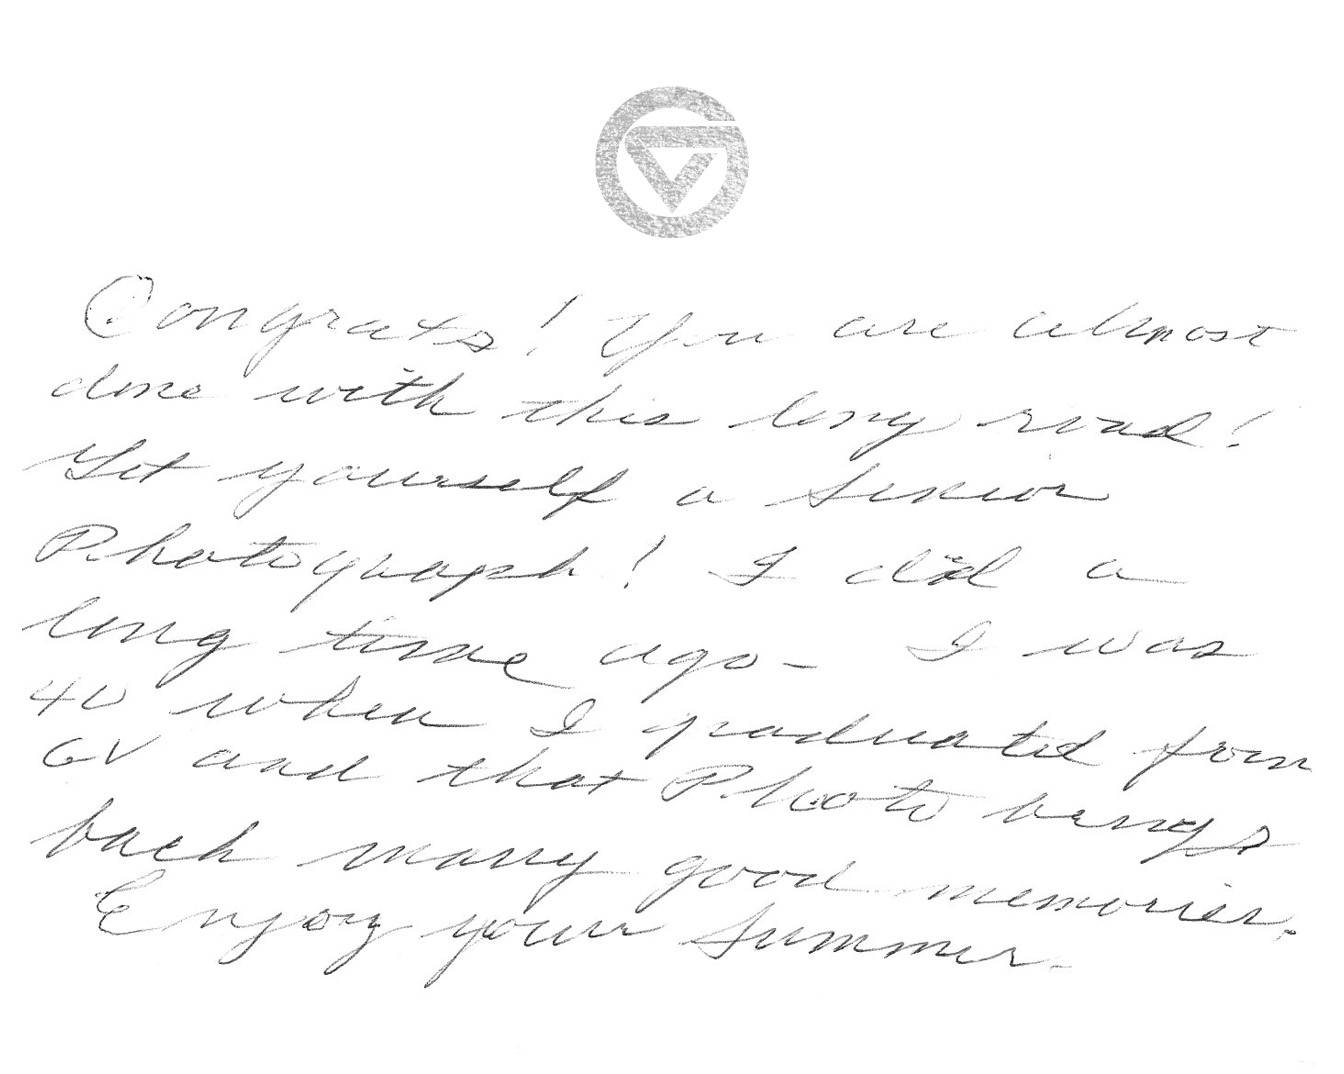 Congrats! You are almost
done with this long road!
Get yourself a Senior
Photograph! I did a
long time ago - I was
40 when I graduated from
GV and that Photo brings
back many good memories.
Enjoy your Summer.